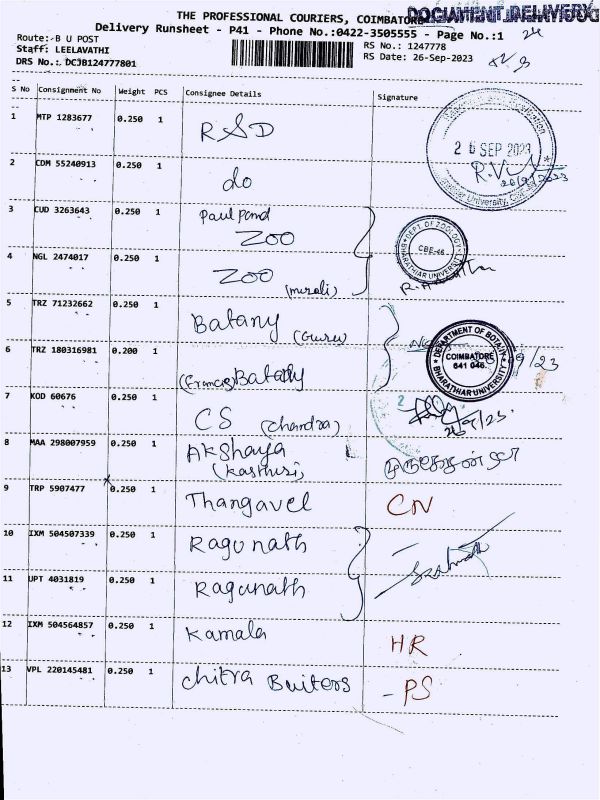 THE PROFESSIONAL COURIERS, COIMBATORE
Delivery Runsheet - P41 - Phone No.:0422-3505555 - Page No.:1
Route:-B U POST
RS No.: 1247778
Staff: LEELAVATHI
RS Date: 26-Sep-2023
DRS No.: DCJB124777801
S No Consignment No Weight PCS Consignee Details Signature
1 MTP 1283677 0.250 1 RSD
26 SEP 2023
2 CDM 55240913 0.250 1 do
26/9/2023
3 CUD 3263643 0.250 1 Paulpand
ZOO
DEPT OF ZOOLOGY
CBE-46
BHARATHIAR UNIVERSITY
4 NGL 2474017 0.250 1 ZOO
(murali)
5 TRZ 71232662 0.250 1 Batany
(Guru)
DEPARTMENT OF BOTANY
COIMBATORE
641 046.
BHARATHIAR UNIVERSITY
6 TRZ 180316981 0.200 1 (Francis) Batany
7 KOD 60676 0.250 1 CS (chandra)
26/9/23.
8 MAA 298007959 0.250 1 Akshaya
(Kasthuri)
9 TRP 5907477 0.250 1 Thangavel CN
10 IXM 504507339 0.250 1 Ragunath
11 UPT 4031819 0.250 1 Ragunath
12 IXM 504564857 0.250 1 Kamala HR
13 VPL 220145481 0.250 1 Chitra Buiters - PS